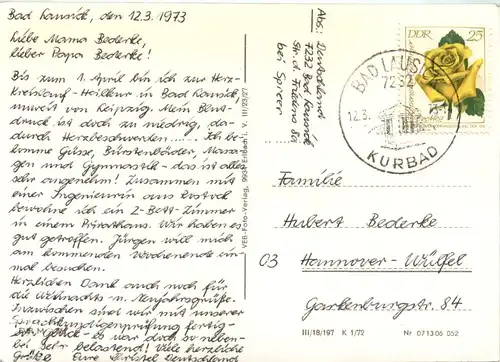 Bad Lausick, den 12.3.1973
Liebe Mama Bederke,
lieber Papa Bederke!
Bis zum 1. April bin ich zur Herz-
Kreislauf-Heilkur in Bad Lausick,
unweit von Leipzig. Mein Blut-
druck ist doch zu niedrig, da-
durch Herzbeschwerden... Ich be-
komme Güsse, Bürstenbäder, Massa-
gen und Gymnastik - das ist alles
sehr angenehm! Zusammen mit
einer Ingenieurin aus Rostock
bewohne ich ein 2-Bett-Zimmer
in einem Privathaus. Wir haben es
gut getroffen. Jürgen will mich
am kommenden Wochenende ein-
mal besuchen.
Herzlichen Dank auch noch für
die Weihnachts- u. Neujahrsgrüße.
Inzwischen sind wir mit unserer
Sprachkundigenprüfung fertig -
ein Glück - es war doch so neben-
bei sehr belastend! Viele herzliche
Grüße Eure Christel Deutschland
VEB-Foto-Verlag, 9935 Erlbach i. V. III/23/27
Abs: Deutschland
7232 Bad Lausick
Str. d.
bei
DDR 25
BAD LAUSICK
7232
12.3.
KURBAD
Familie
Hubert Bederke
03 Hannover-Wülfel
Garkenburgstr. 84
III/18/197 K 1/72 Nr. 07 13 06 052